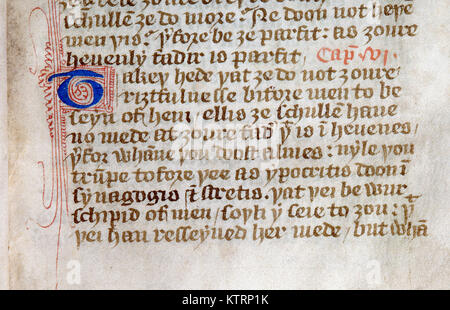 schullen ȝe do more? Ne doon not heþe
men þis? þfore be ȝe parfit: as ȝoure
heuenly fadir is parfit, Cap̄. vi.
Takeþ hede þat ȝe do not ȝoure
riȝtfulnesse bifore men to be
seyn of hem, ellis ȝe schullen haue
no mede at ȝoure fad' þͭ is ī heuenes,
þfor whāne þou dost almes: nyle þou
trūpe tofore þee as ypocritis doon ī
synagogis ⁊ stretis. þat þei be wur
schipid of men, soþli y seie to ȝou: þͭ
þei han resseyued her mede, but whā
alamy
Image ID: KTRP1K
www.alamy.com